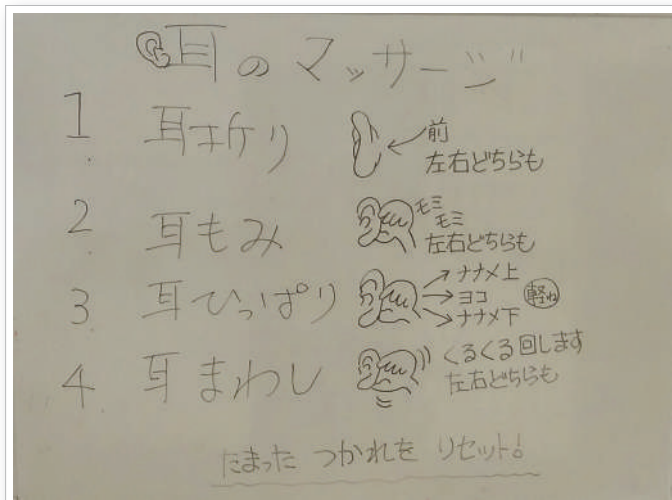 耳のマッサージ
1. 耳折り
前
左右どちらも
2. 耳もみ
モミモミ
左右どちらも
3. 耳ひっぱり
ナナメ上
ヨコ
ナナメ下
軽ね
4. 耳まわし
くるくる回します
左右どちらも
たまった つかれを リセット!